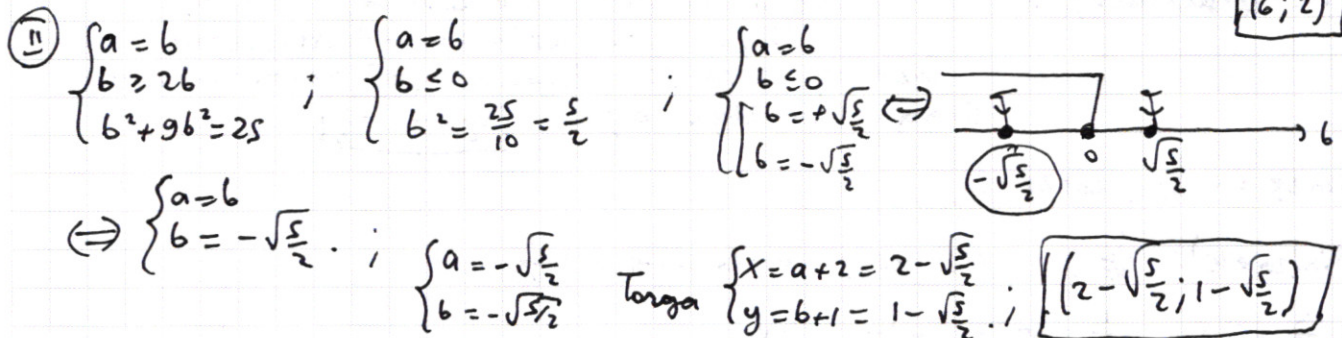 (6; 2)
II { a = b ; b ≥ 2b ; b² + 9b² = 25 ; { a = b ; b ≤ 0 ; b² = 25/10 = 5/2 ; { a = b ; b ≤ 0 ; [ b = +√(5/2) ; b = -√(5/2) ⇔ -√(5/2) 0 √(5/2) b
⇔ { a = b ; b = -√(5/2) . ; { a = -√(5/2) ; b = -√(5/2) Тогда { x = a+2 = 2 - √(5/2) ; y = b+1 = 1 - √(5/2) . ; (2 - √(5/2); 1 - √(5/2))